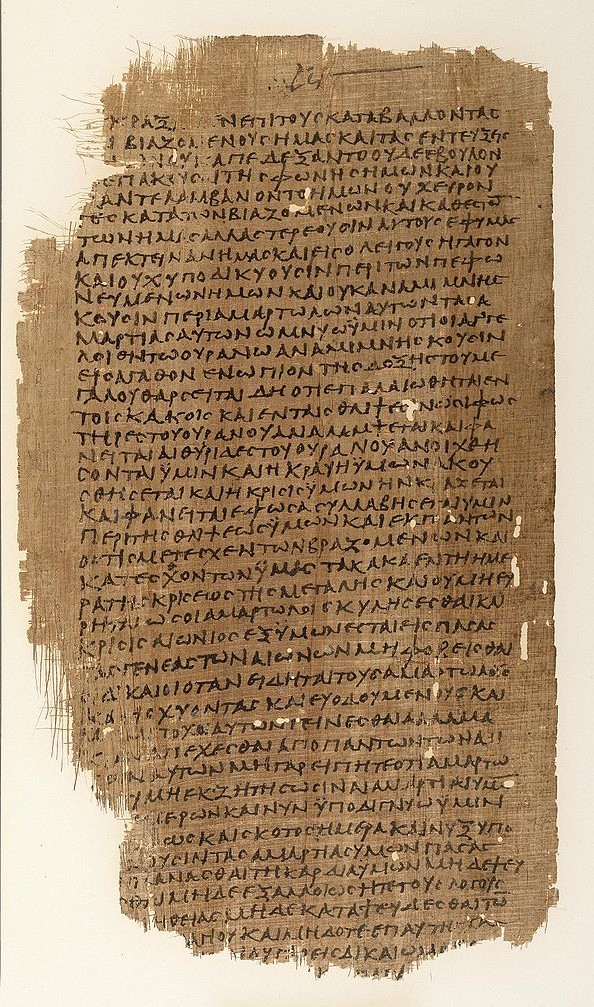 ΝΕΠΙΤΟΥϹΚΑΤΑΒΑΛΛΟΝΤΑϹ
ΒΙΑΖΟΜΕΝΟΥϹΗΜΑϹΚΑΙΤΑϹΕΝΤΕΥΞΕΙϹ
ΑΠΕΔΕΞΑΝΤΟΟΥΔΕΕΒΟΥΛΟΝ
ΤΗϹΦΩΝΗϹΗΜΩΝΚΑΙΟΥ
ΑΝΤΕΛΑΜΒΑΝΟΝΤΟΗΜΩΝΟΥΧΕΥΡΟΝ
ΤΕϹΚΑΤΑΤΩΝΒΙΑΖΟΜΕΝΩΝΚΑΙΚΑΤΕϹΘ
ΤΩΝΗΜΑϹΑΛΛΑϹΤΕΡΕΟΥϹΙΝΑΥΤΟΥϹΕΦΗΜΑϹ
ΑΠΕΚΤΕΙΝΑΝΗΜΑϹΚΑΙΕΙϹΟΛΕΙΓΟΥϹΗΓΑΓΟΝ
ΚΑΙΟΥΧΥΠΟΔΙΚΥΟΥϹΙΝΠΕΡΙΤΩΝΠΕΦΩ
ΝΕΥΜΕΝΩΝΗΜΩΝΚΑΙΟΥΚΑΝΑΜΙΜΝΗϹ
ΚΟΥϹΙΝΠΕΡΙΑΜΑΡΤΩΛΩΝΑΥΤΩΝΤΑϹΑ
ΜΑΡΤΙΑϹΑΥΤΩΝΟΜΝΥΩΫΜΙΝΟΤΙΟΙΑΓΓΕ
ΛΟΙΕΝΤΩΟΥΡΑΝΩΑΝΑΜΙΜΝΗϹΚΟΥϹΙΝ
ΕΙϹΑΓΑΘΟΝΕΝΩΠΙΟΝΤΗϹΔΟΞΗϹΤΟΥΜΕ
ΓΑΛΟΥΘΑΡϹΕΙΤΑΙΔΗΟΤΙΕΠΑΛΑΙΩΘΗΤΑΙΕΝ
ΤΟΙϹΚΑΚΟΙϹΚΑΙΕΝΤΑΙϹΘΛΙΨΕϹΙΝΩϹΙΦΩϹ
ΤΗΡΕϹΤΟΥΟΥΡΑΝΟΥΑΝΑΛΑΜΨΕΤΑΙΚΑΙΦΑ
ΝΕΙΤΑΙΑΙΘΥΡΙΔΕϹΤΟΥΟΥΡΑΝΟΥΑΝΟΙΧΘΗ
ϹΟΝΤΑΙΫΜΙΝΚΑΙΗΚΡΑΥΓΗΫΜΩΝΑΚΟΥ
ϹΘΗϹΕΤΑΙΚΑΙΗΚΡΙϹΙϹΫΜΩΝΗΝΚΡΑΖΕΤΑΙ
ΚΑΙΦΑΝΕΙΤΑΙΕΦΩϹΑϹΥΛΛΑΒΗϹΕΤΑΙΥΜΙΝ
ΠΕΡΙΤΗϹΘΛΙΨΕΩϹΫΜΩΝΚΑΙΕΚΠΑΝΤΩΝ
ΟϹΤΙϹΜΕΤΕϹΧΕΝΤΩΝΒΙΑΖΟΜΕΝΩΝΚΑΙ
ΚΑΤΕϹΘΟΝΤΩΝΫΜΑϹΤΑΚΑΚΑΕΝΤΗΗΜΕ
ΡΑΤΗϹΚΡΙϹΕΩϹΤΗϹΜΕΓΑΛΗϹΚΑΙΟΥΜΗΕΥ
ΡΗΤΑΙΩϹΟΙΑΜΑΡΤΩΛΟΙϹΚΥΛΗϹΕϹΘΑΙΚΑΙ
ΚΡΙϹΙϹΑΙΩΝΙΟϹΕΞΫΜΩΝΕϹΤΑΙΕΙϹΠΑϹΑϹ
ΤΑϹΓΕΝΕΑϹΤΩΝΑΙΩΝΩΝΜΗΦΟΒΕΙϹΘΑΙ
ΔΙΚΑΙΟΙΟΤΑΝΕΙΔΗΤΑΙΤΟΥϹΑΜΑΡΤΩΛΟΥϹ
ΚΑΤΙϹΧΥΟΝΤΑϹΚΑΙΕΥΟΔΟΥΜΕΝΟΥϹΚΑΙ
ΤΟΧΟΙΑΥΤΩΝΓΕΙΝΕϹΘΑΙΑΛΛΑΜΑ
ΑΠΕΧΕϹΘΑΙΑΠΟΠΑΝΤΩΝΤΩΝΑΔΙ
ΑΥΤΩΝΜΗΓΑΡΕΙΠΗΤΕΟΤΙΑΜΑΡΤΩ
ΜΗΕΚΖΗΤΗϹΩϹΙΝΑΙΑΜΑΡΤΙΑΙΥΜΩ
ΜΕΡΩΝΚΑΙΝΥΝΫΠΟΔΙΓΝΥΩΫΜΙΝ
ΩϹΚΑΙϹΚΟΤΟϹΗΜΕΡΑΚΑΙΝΥΞΥΠΟ
ΟΥϹΙΝΤΑϹΑΜΑΡΤΙΑϹΥΜΩΝΠΑϹΑϹ
ΠΛΑΝΑϹΘΑΙΤΗΚΑΡΔΙΑΥΜΩΝΜΗΔΕΨΕΥ
ΜΗΔΕΕΞΑΛΛΟΙΩϹΗΤΕΤΟΥϹΛΟΓΟΥϹ
ΛΗΘΕΙΑϹΜΗΔΕΚΑΤΑΨΕΥΔΕϹΘΑΙΤΩ
ΚΑΙΜΗΔΟΤΕΕΠΑ
ΔΙΚΑΙΩ